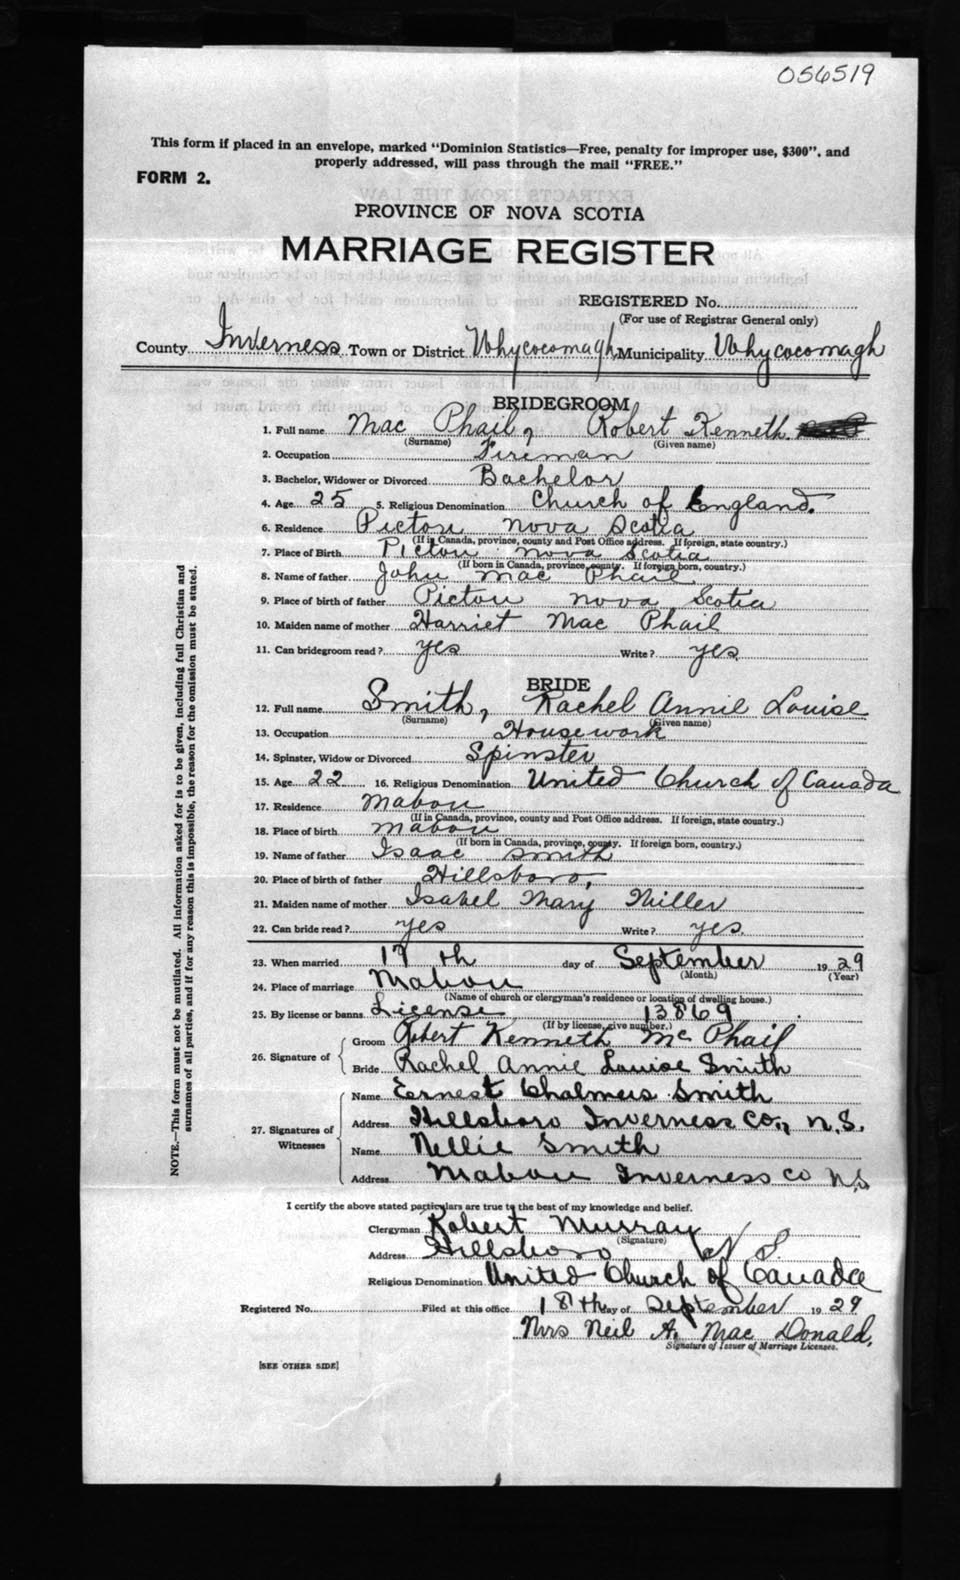 056519
This form if placed in an envelope, marked "Dominion Statistics—Free, penalty for improper use, $300", and
properly addressed, will pass through the mail "FREE."
FORM 2.
PROVINCE OF NOVA SCOTIA
MARRIAGE REGISTER
REGISTERED No.
(For use of Registrar General only)
County Inverness Town or District Whycocomagh Municipality Whycocomagh
BRIDEGROOM
1. Full name Mac Phail, Robert Kenneth.
(Surname) (Given name)
2. Occupation Fireman
3. Bachelor, Widower or Divorced Bachelor
4. Age 25 5. Religious Denomination Church of England.
6. Residence Pictou Nova Scotia
(If in Canada, province, county and Post Office address. If foreign, state country.)
7. Place of Birth Pictou Nova Scotia
(If born in Canada, province, county. If foreign born, country.)
8. Name of father John Mac Phail
9. Place of birth of father Pictou Nova Scotia
10. Maiden name of mother Harriet Mac Phail
11. Can bridegroom read? yes Write? yes
BRIDE
12. Full name Smith, Rachel Annie Louise
(Surname) (Given name)
13. Occupation Housework
14. Spinster, Widow or Divorced Spinster
15. Age 22 16. Religious Denomination United Church of Canada
17. Residence Mabou
(If in Canada, province, county and Post Office address. If foreign, state country.)
18. Place of birth Mabou
(If born in Canada, province, county. If foreign born, country.)
19. Name of father Isaac Smith
20. Place of birth of father Hillsboro,
21. Maiden name of mother Isabel Mary Miller
22. Can bride read? yes Write? yes.
23. When married 17 th day of September 1929
(Month) (Year)
24. Place of marriage Mabou
(Name of church or clergyman's residence or location of dwelling house.)
25. By license or banns License 13869
(If by license, give number.)
26. Signature of
Groom Robert Kenneth Mc Phail
Bride Rachel Annie Louise Smith
27. Signatures of Witnesses
Name Ernest Chalmers Smith
Address Hillsboro Inverness Co., N.S.
Name Nellie Smith
Address Mabou Inverness Co N.S
I certify the above stated particulars are true to the best of my knowledge and belief.
Clergyman Robert Murray
(Signature)
Address Hillsboro N S.
Religious Denomination United Church of Canada
Registered No. Filed at this office 18th day of September 1929
Mrs Neil A. Mac Donald,
Signature of Issuer of Marriage Licenses.
[SEE OTHER SIDE]
NOTE.—This form must not be mutilated. All information asked for is to be given, including full Christian and
surnames of all parties, and if for any reason this is impossible, the reason for the omission must be stated.